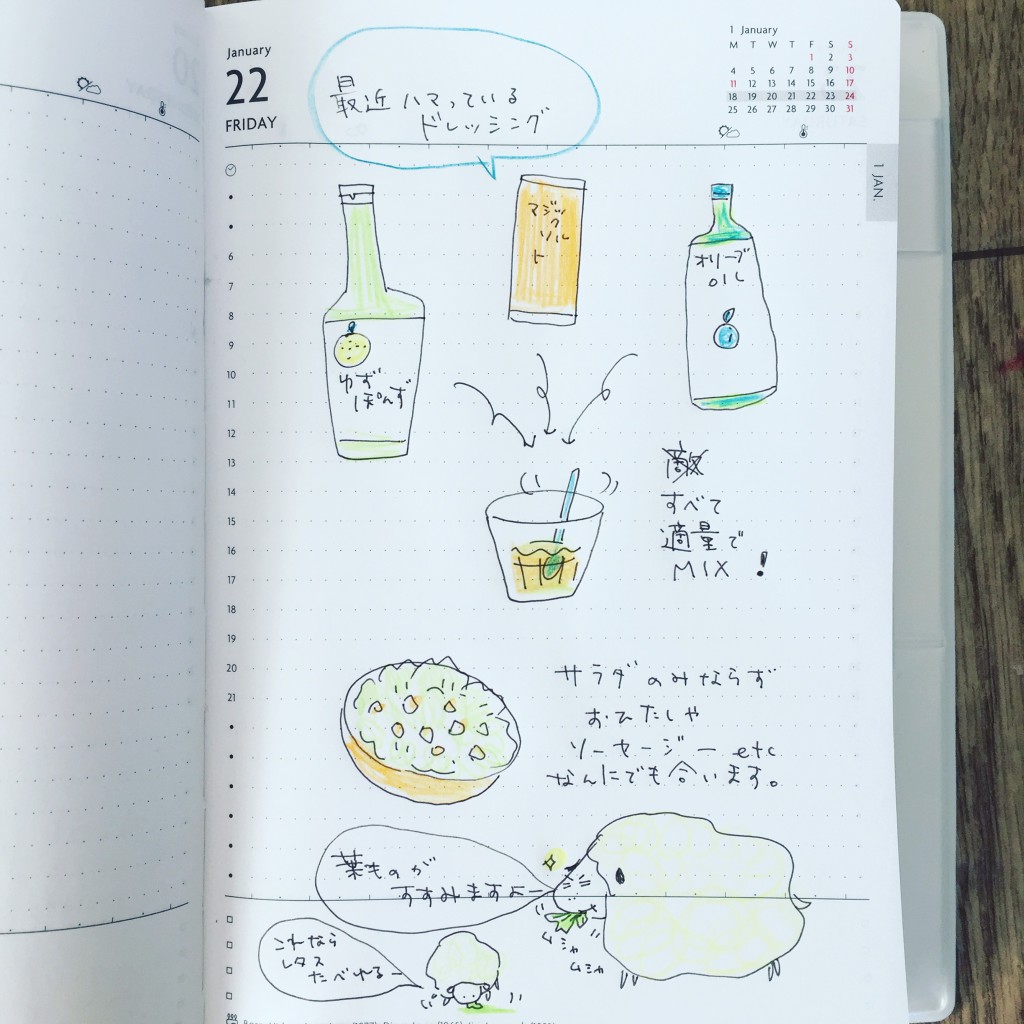 January
22
FRIDAY
最近ハマっている
ドレッシング
1 January
M T W T F S S
1 2 3
4 5 6 7 8 9 10
11 12 13 14 15 16 17
18 19 20 21 22 23 24
25 26 27 28 29 30 31
1 JAN.
マジッ
ク
ソル
ト
オリーブ
OIL
ゆず
ぽんず
6
7
8
9
10
11
12
13
14
15
16
17
18
19
20
21
すべて
適量で
MIX!
サラダのみならず
おひたしや
ソーセージー etc
なんにでも合います。
葉ものが
すすみますよー
ムシャ
ムシャ
これなら
レタス
たべれるー